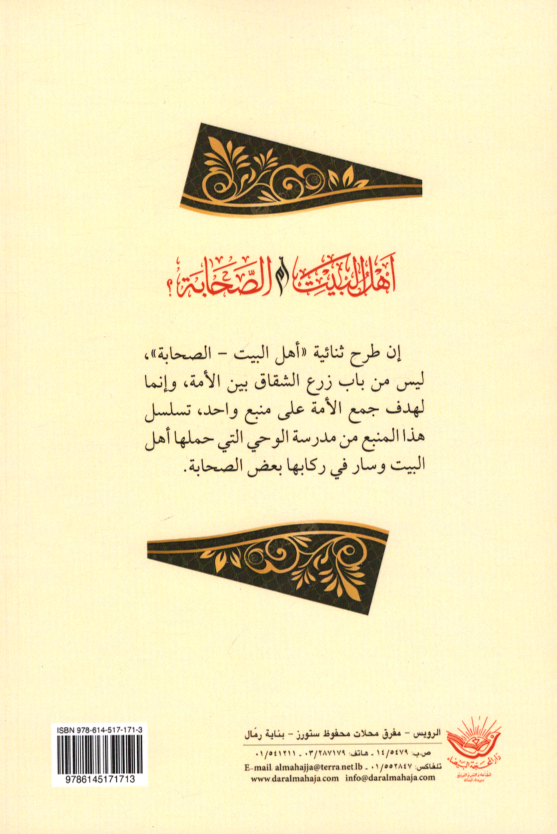 أَهْلُ البَيْتِ أم الصَّحَابَة؟
إن طرح ثنائية «أهل البيت – الصحابة»،
ليس من باب زرع الشقاق بين الأمة، وإنما
لهدف جمع الأمة على منبع واحد، تسلسل
هذا المنبع من مدرسة الوحي التي حملها أهل
البيت وسار في ركابها بعض الصحابة.
ISBN 978-614-517-171-3
9786145171713
الرويس – مفرق محلات محفوظ ستورز – بناية رمّال
ص.ب: ١٤/٥٤٧٩ - هاتف: ٠٣/٢٨٧١٧٩ - ٠١/٥٤١٢١١
تلفاكس: ٠١/٥٥٢٨٤٧ E-mail almahajja@terra.net.lb
www.daralmahaja.com info@daralmahaja.com
دار المحجة البيضاء